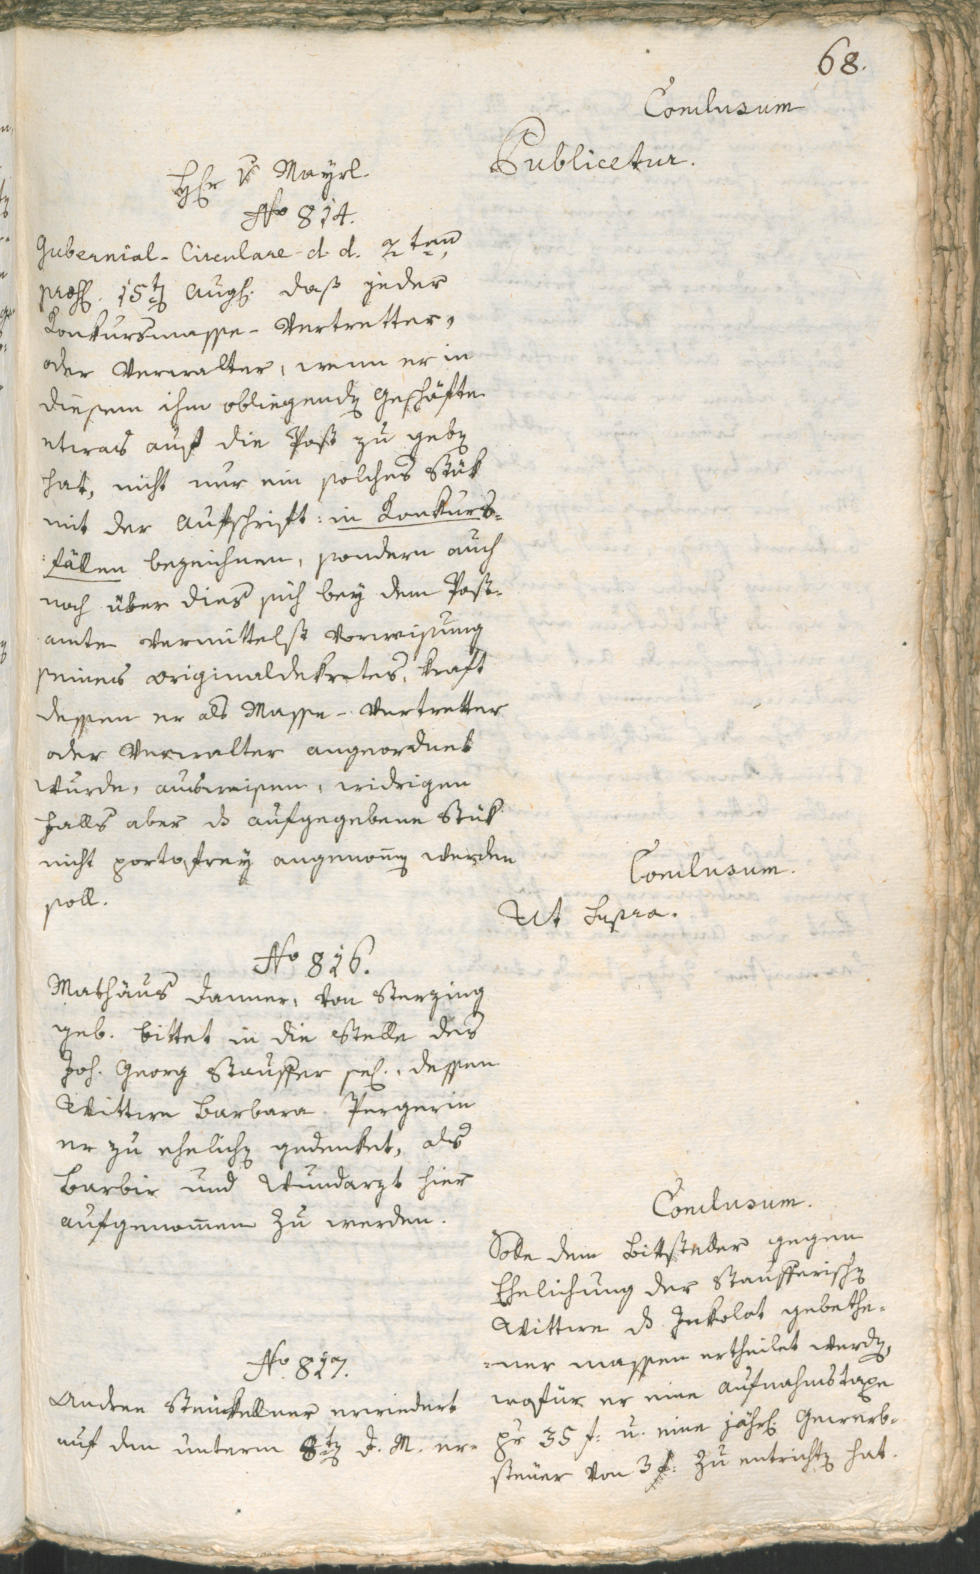 68.
Conclusum
Publicetur.
Hr v Mayrl.
No 814.
Gubernial-Circulare d. d. 2ten
praes. 15tn Augs. daß jeder
Konkursmasse-Vertretter,
oder Verwalter, wenn er in
diesem ihm obliegendn Geschäfte
etwas auf die Post zu gebn
hat, nicht nur ein solches Stük
mit der Aufschrift: in Konkurs=
=fällen bezeichnen, sondern auch
noch über dies sich bey dem Post=
amte vermittelst Vorweisung
seines Originaldekretes, kraft
dessen er als Masse-Vertretter
oder Verwalter angeordnet
wurde, ausweisen, widrigen
Falls aber ds aufgegebene Stük
nicht portofrey angenomn werden
soll.
Conclusum.
Ut supra.
No 816.
Mathäus Danner, von Sterzing
geb. bittet in die Stelle des
Joh. Georg Stauffer sel., dessen
Wittwe Barbara Pergerin
er zu ehelichn gedenket, als
Barbir und Wundarzt hier
aufgenommen zu werden.
Conclusum.
Solle dem Bittsteller gegen
Ehelichung der Staufferischn
Wittwe ds Inkolat gebethe=
=ner massen ertheilet werdn,
wofür er eine Aufnahmstaxe
pr 35 f: u. eine jährl. Gewerb=
steuer von 3 f: zu entrichtn hat.
No. 817.
Andree Steickellner erwiedert
auf den unterm 8tn d. M. er=